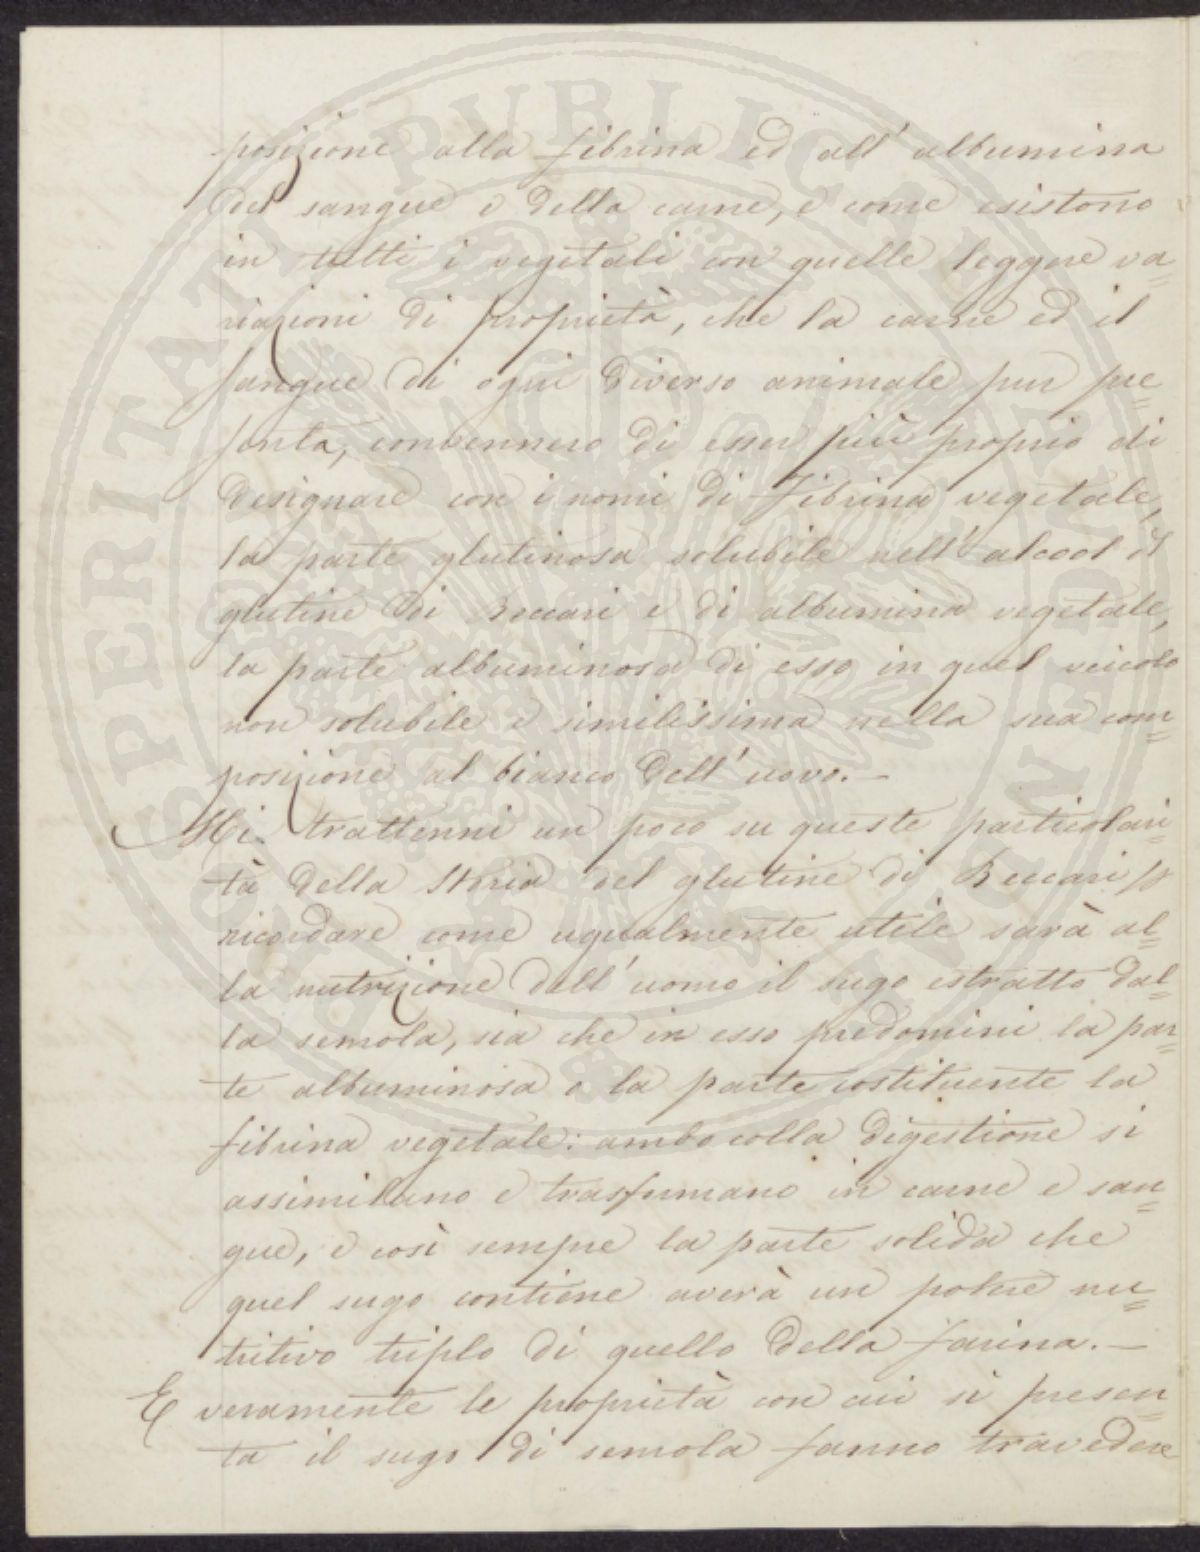 posizione alla fibrina ed all' albumina
del sangue e della carne, e come esistono
in tutti i vegetali con quelle leggere va=
riazioni di proprietà, che la carne ed il
sangue di ogni diverso animale pur pre=
senta, convennero di esser più proprio di
designare con i nomi di Fibrina vegetale,
la parte glutinosa solubile nell' alcool il
glutine di Beccari e di albumina vegetale,
la parte albuminosa di esso in quel veicolo
non solubile e similissima nella sua com=
posizione al bianco dell' uovo. —
Mi trattenni un poco su queste particolari=
tà della storia del glutine di Beccari p
ricordare come ugualmente utile sarà al=
la nutrizione dell' uomo il sugo estratto dal=
la semola, sia che in esso predomini la par=
te albuminosa o la parte costituente la
fibrina vegetale: ambo colla digestione si
assimilano e trasfumano in carne e san=
gue, e così sempre la parte solida che
quel sugo contiene averà un potere nu=
tritivo triplo di quello della farina. —
E veramente le proprietà con cui si presen=
ta il sugo di semola fanno travedere
PROSPERITATI PUBLICAE AUGENDAE